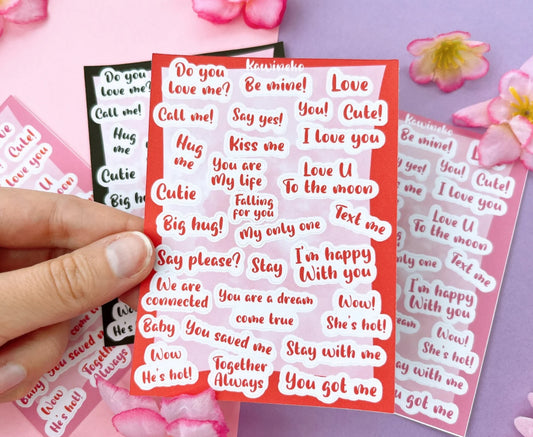 Kawineko
Do you
love me?
Be mine!
Love
Call me!
Say yes!
You!
Cute!
Hug
me
Kiss me
I love you
You are
My life
Love U
To the moon
Cutie
Falling
for you
Text me
Big hug!
My only one
Say please?
Stay
I'm happy
With you
We are
connected
You are a dream
come true
Wow!
She's hot!
Baby
You saved me
Stay with me
Wow
He's hot!
Together
Always
You got me
Do you
love me?
Call me!
Hug
me
Cutie
Big
We
con
Wow
He's
Cute!
I love you
U
moon
You saved me
Together
Always
Baby
Wow
He's hot!
Kawineko
Be mine!
You!
Cute!
I love you
Love U
To the moon
only one
Text me
I'm happy
With you
dream
Wow!
She's hot!
Stay with me
You got me